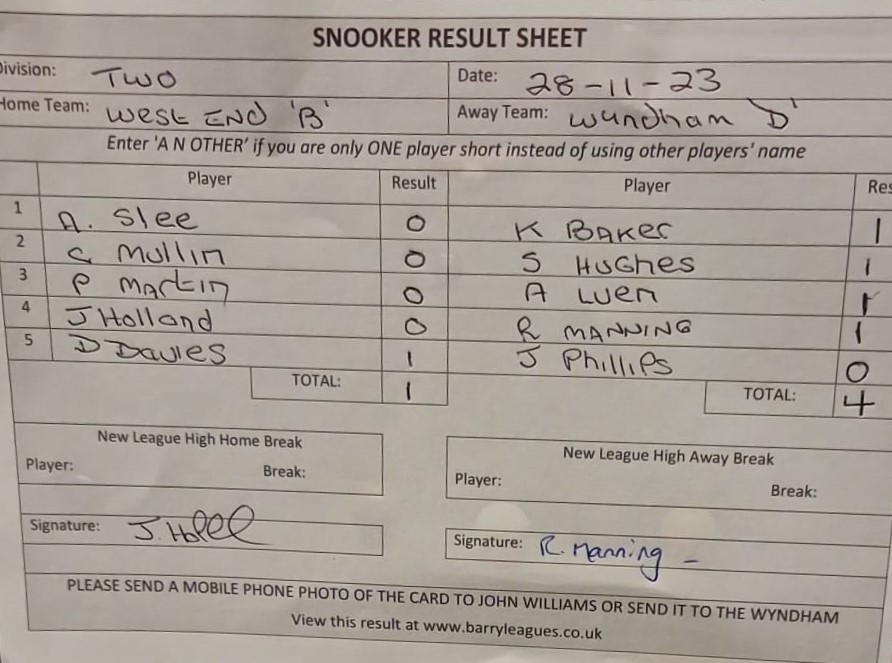 SNOOKER RESULT SHEET
Division: TWO Date: 28-11-23
Home Team: West END 'B' Away Team: Wyndham D'
Enter 'A N OTHER' if you are only ONE player short instead of using other players' name
Player Result Player Res
1 A. Slee 0 K BAKER 1
2 C Mullin 0 S HUGHES 1
3 P MArtin 0 A Luen 1
4 J Holland 0 R MANNING 1
5 D Davies 1 J PhilliPs 0
TOTAL: 1 TOTAL: 4
New League High Home Break New League High Away Break
Player: Break: Player: Break:
Signature: Signature: R. Manning -
PLEASE SEND A MOBILE PHONE PHOTO OF THE CARD TO JOHN WILLIAMS OR SEND IT TO THE WYNDHAM
View this result at www.barryleagues.co.uk